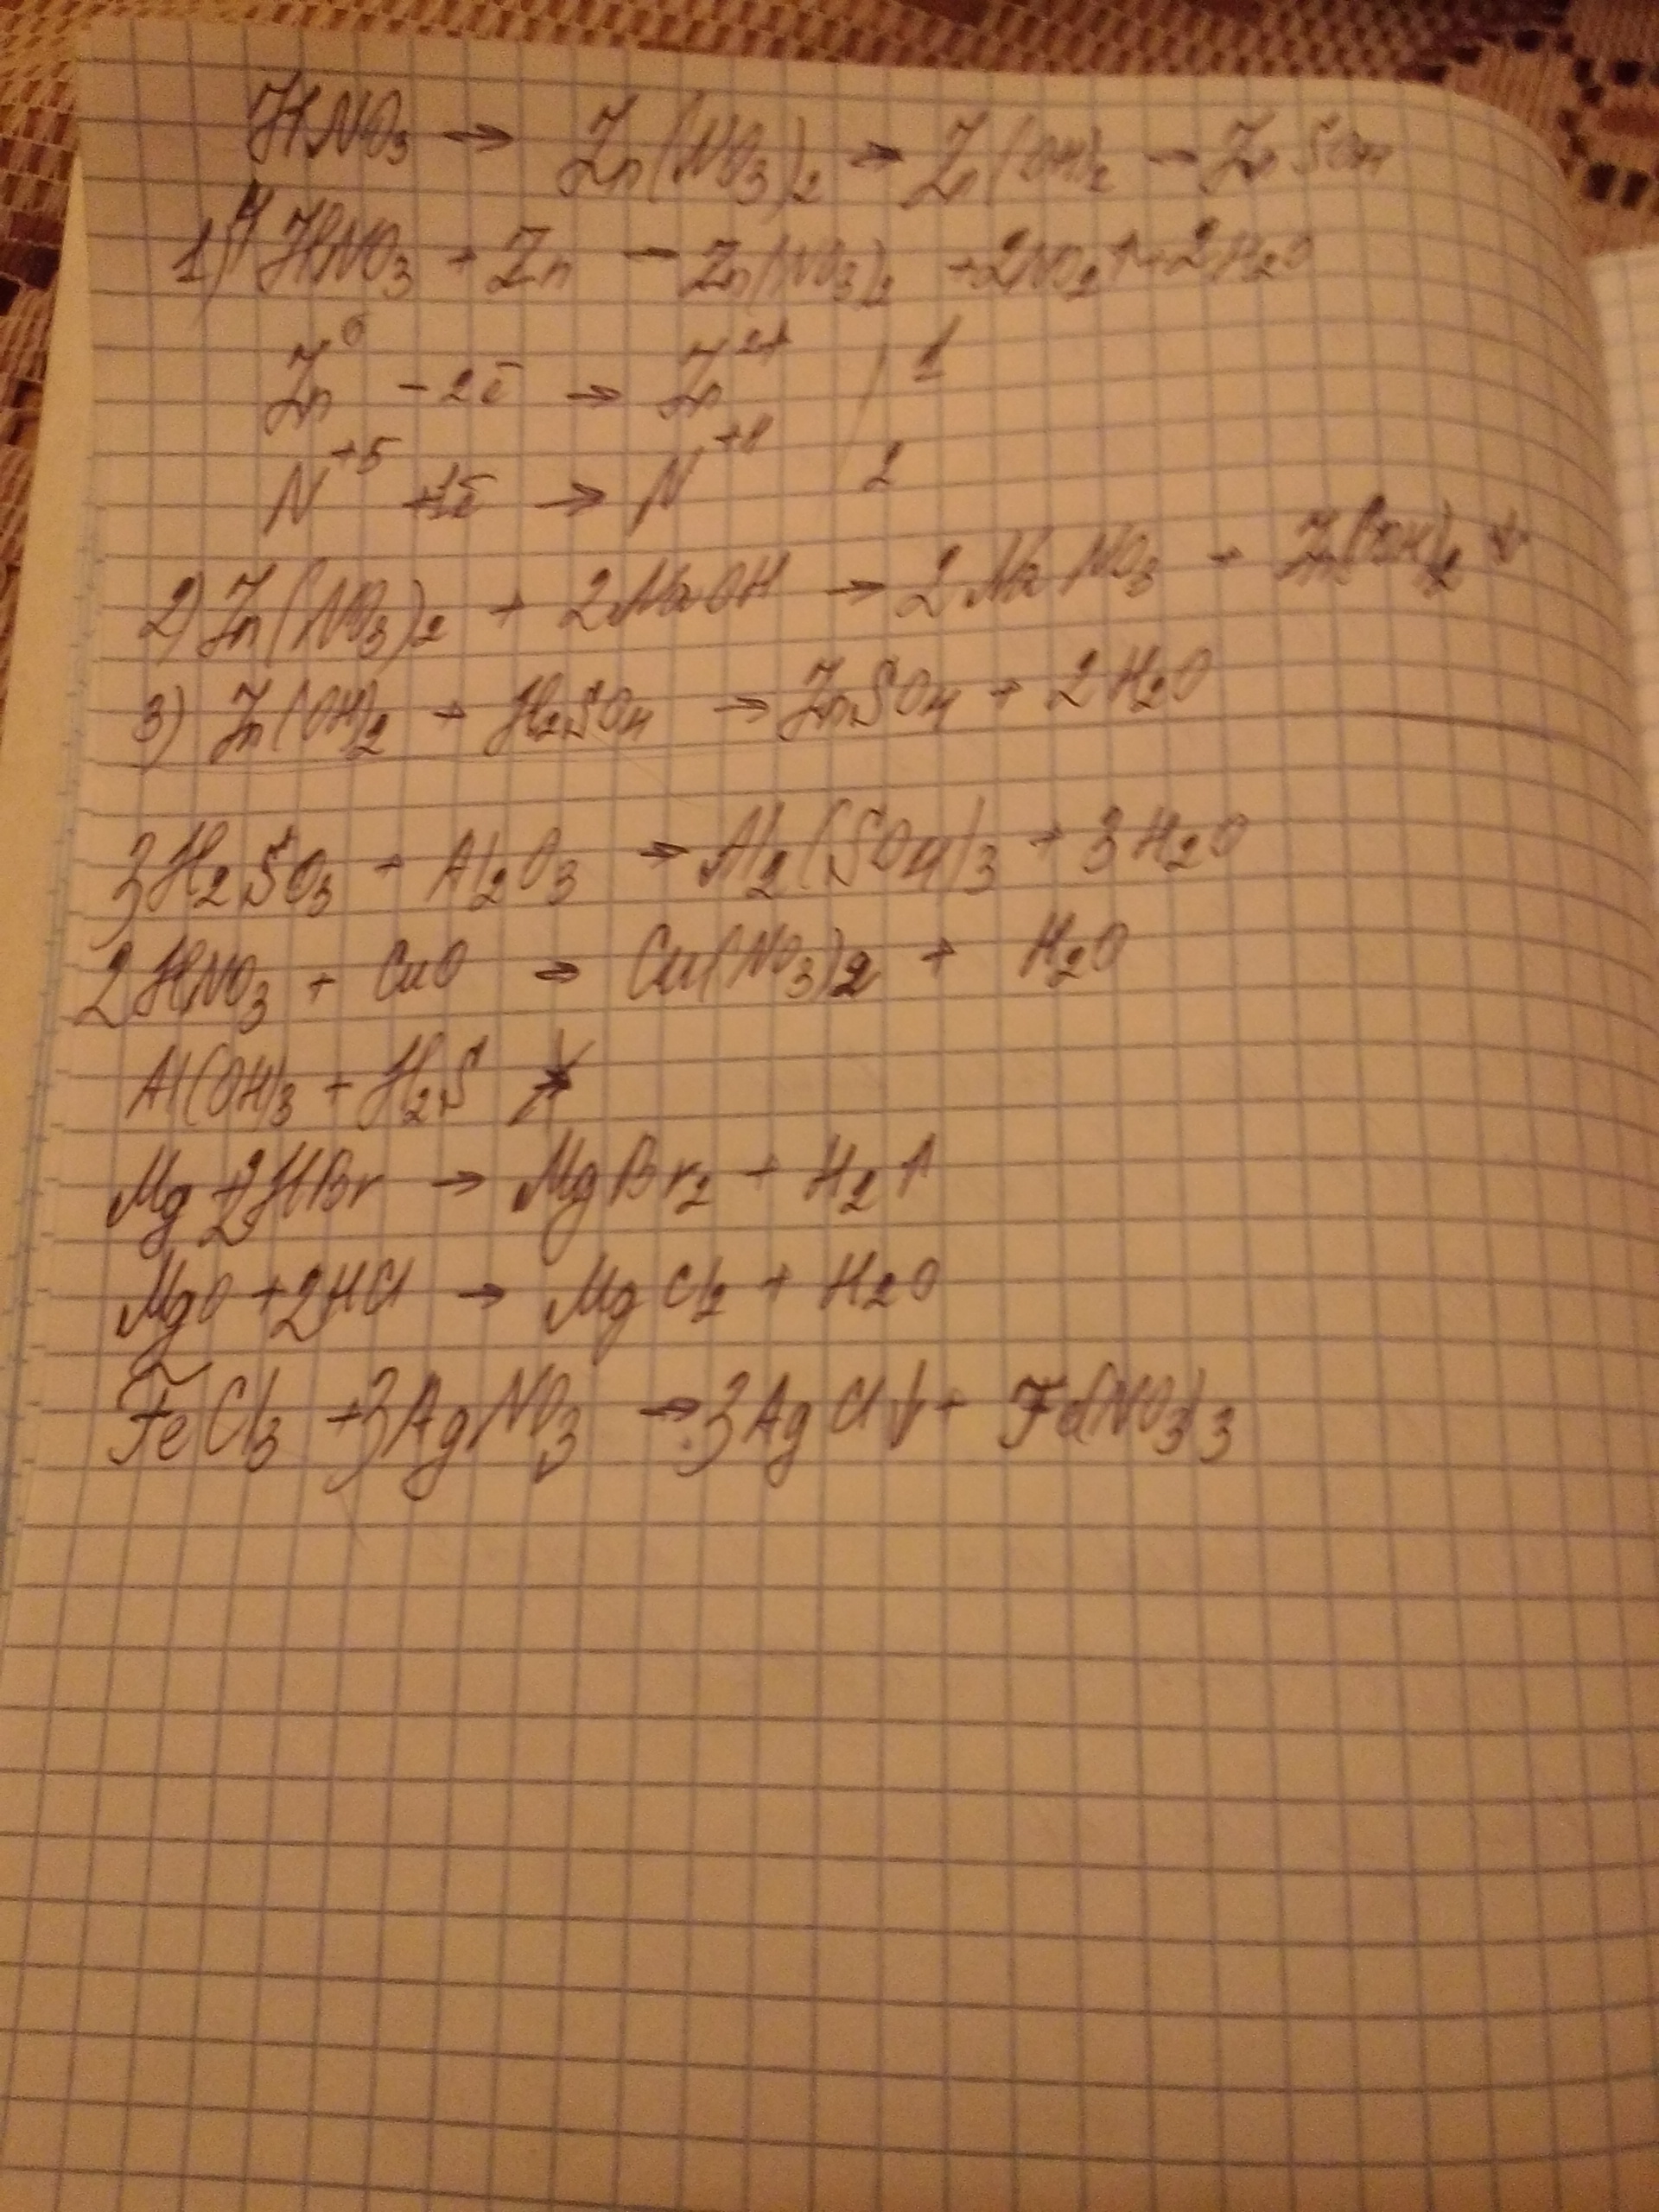 HNO3 → Zn(NO3)2 → Zn(OH)2 → ZnSO4
1) 4HNO3 + Zn → Zn(NO3)2 + 2NO2↑ + 2H2O
Zn⁰ - 2ē → Zn²⁺ | 1
N⁺⁵ +1ē → N⁺⁴ 2
2) Zn(NO3)2 + 2NaOH → 2NaNO3 + Zn(OH)2 ↓
3) Zn(OH)2 + H2SO4 → ZnSO4 + 2H2O
3H2SO3 + Al2O3 → Al2(SO4)3 + 3H2O
2HNO3 + CuO → Cu(NO3)2 + H2O
Al(OH)3 + H2S ↛
Mg + 2HBr → MgBr2 + H2↑
MgO + 2HCl → MgCl2 + H2O
FeCl3 + 3AgNO3 → 3AgCl↓ + Fe(NO3)3